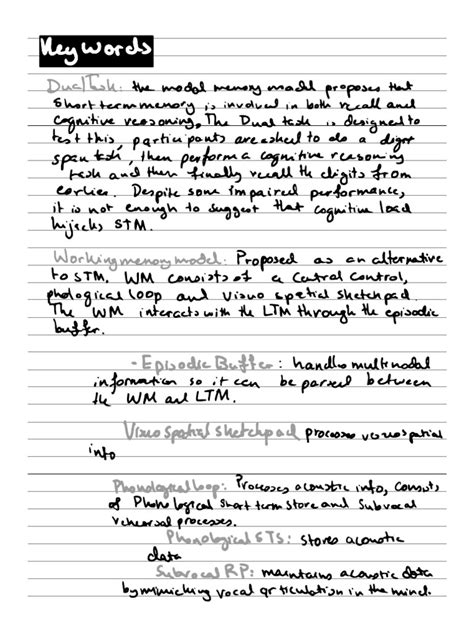 Key words
Dual Task: the modal memory model proposes that
short term memory is involved in both recall and
cognitive reasoning. The Dual task is designed to
test this, participants are asked to do a digit
span task, then perform a cognitive reasoning
task and then finally recall the digits from
earlier. Despite some impaired performance,
it is not enough to suggest that cognitive load
hijacks STM.
Working memory model: Proposed as an alternative
to STM. WM consists of a Central Control,
phological loop and visuo spatial sketchpad.
The WM interacts with the LTM through the episodic
buffer.
- Episodic Buffer: handles multimodal
information so it can be parsed between
the WM and LTM.
Visuo spatial sketchpad processes visuospatial
info
Phonological loop: Processes acoustic info, consists
of Phonological short term store and Subvocal
rehearsal processes.
Phonological STS: stores acoustic
data
Subvocal RP: maintains acoustic data
by mimicking vocal articulation in the mind.